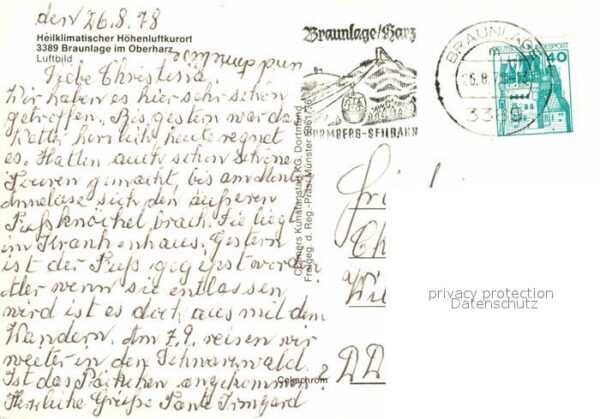 den 26.8.78
Heilklimatischer Höhenluftkurort
3389 Braunlage im Oberharz
Luftbild
Liebe Christiena
Wir haben es hier sehr schön
getroffen. Bis gestern war das
herrlich, heute regnet
es. Hatten auch schon schöne
Touren gemacht, bis am
Anneliese sich den äußeren
Fußknöchel brach. Sie liegt
im Krankenhaus. Gestern
ist der Fuß gegipst worden
Aber wenn sie entlassen
wird ist es doch aus mit dem
Wandern. Am 7.9. reisen wir
weiter in den Schwarzwald.
Ist das Päckchen angekommen?
Herzliche Grüße Tante Irmgard
und
Cramers Kunstanstalt KG, Dortmund
Freigeg. d. Reg.-Präs. Münster
Cekachrom
Braunlage/Harz
WURMBERG-SEILBAHN
BRAUNLAGE
26.8.78
3389
DEUTSCHE BUNDESPOST
40
DD
privacy protection
Datenschutz